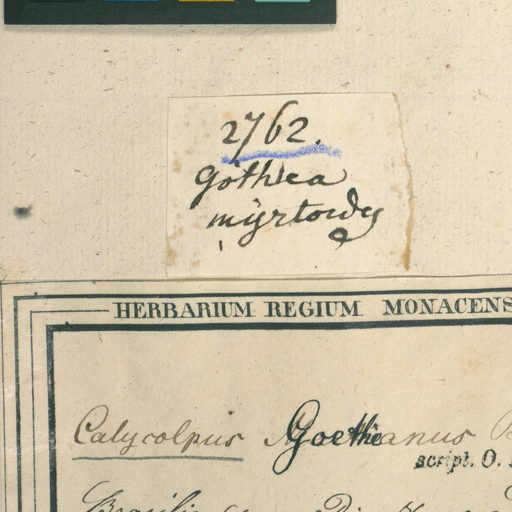 2762.
Göthea
myrtoides
HERBARIUM REGIUM MONACENS
Calycolpus Goetheanus
script. O.